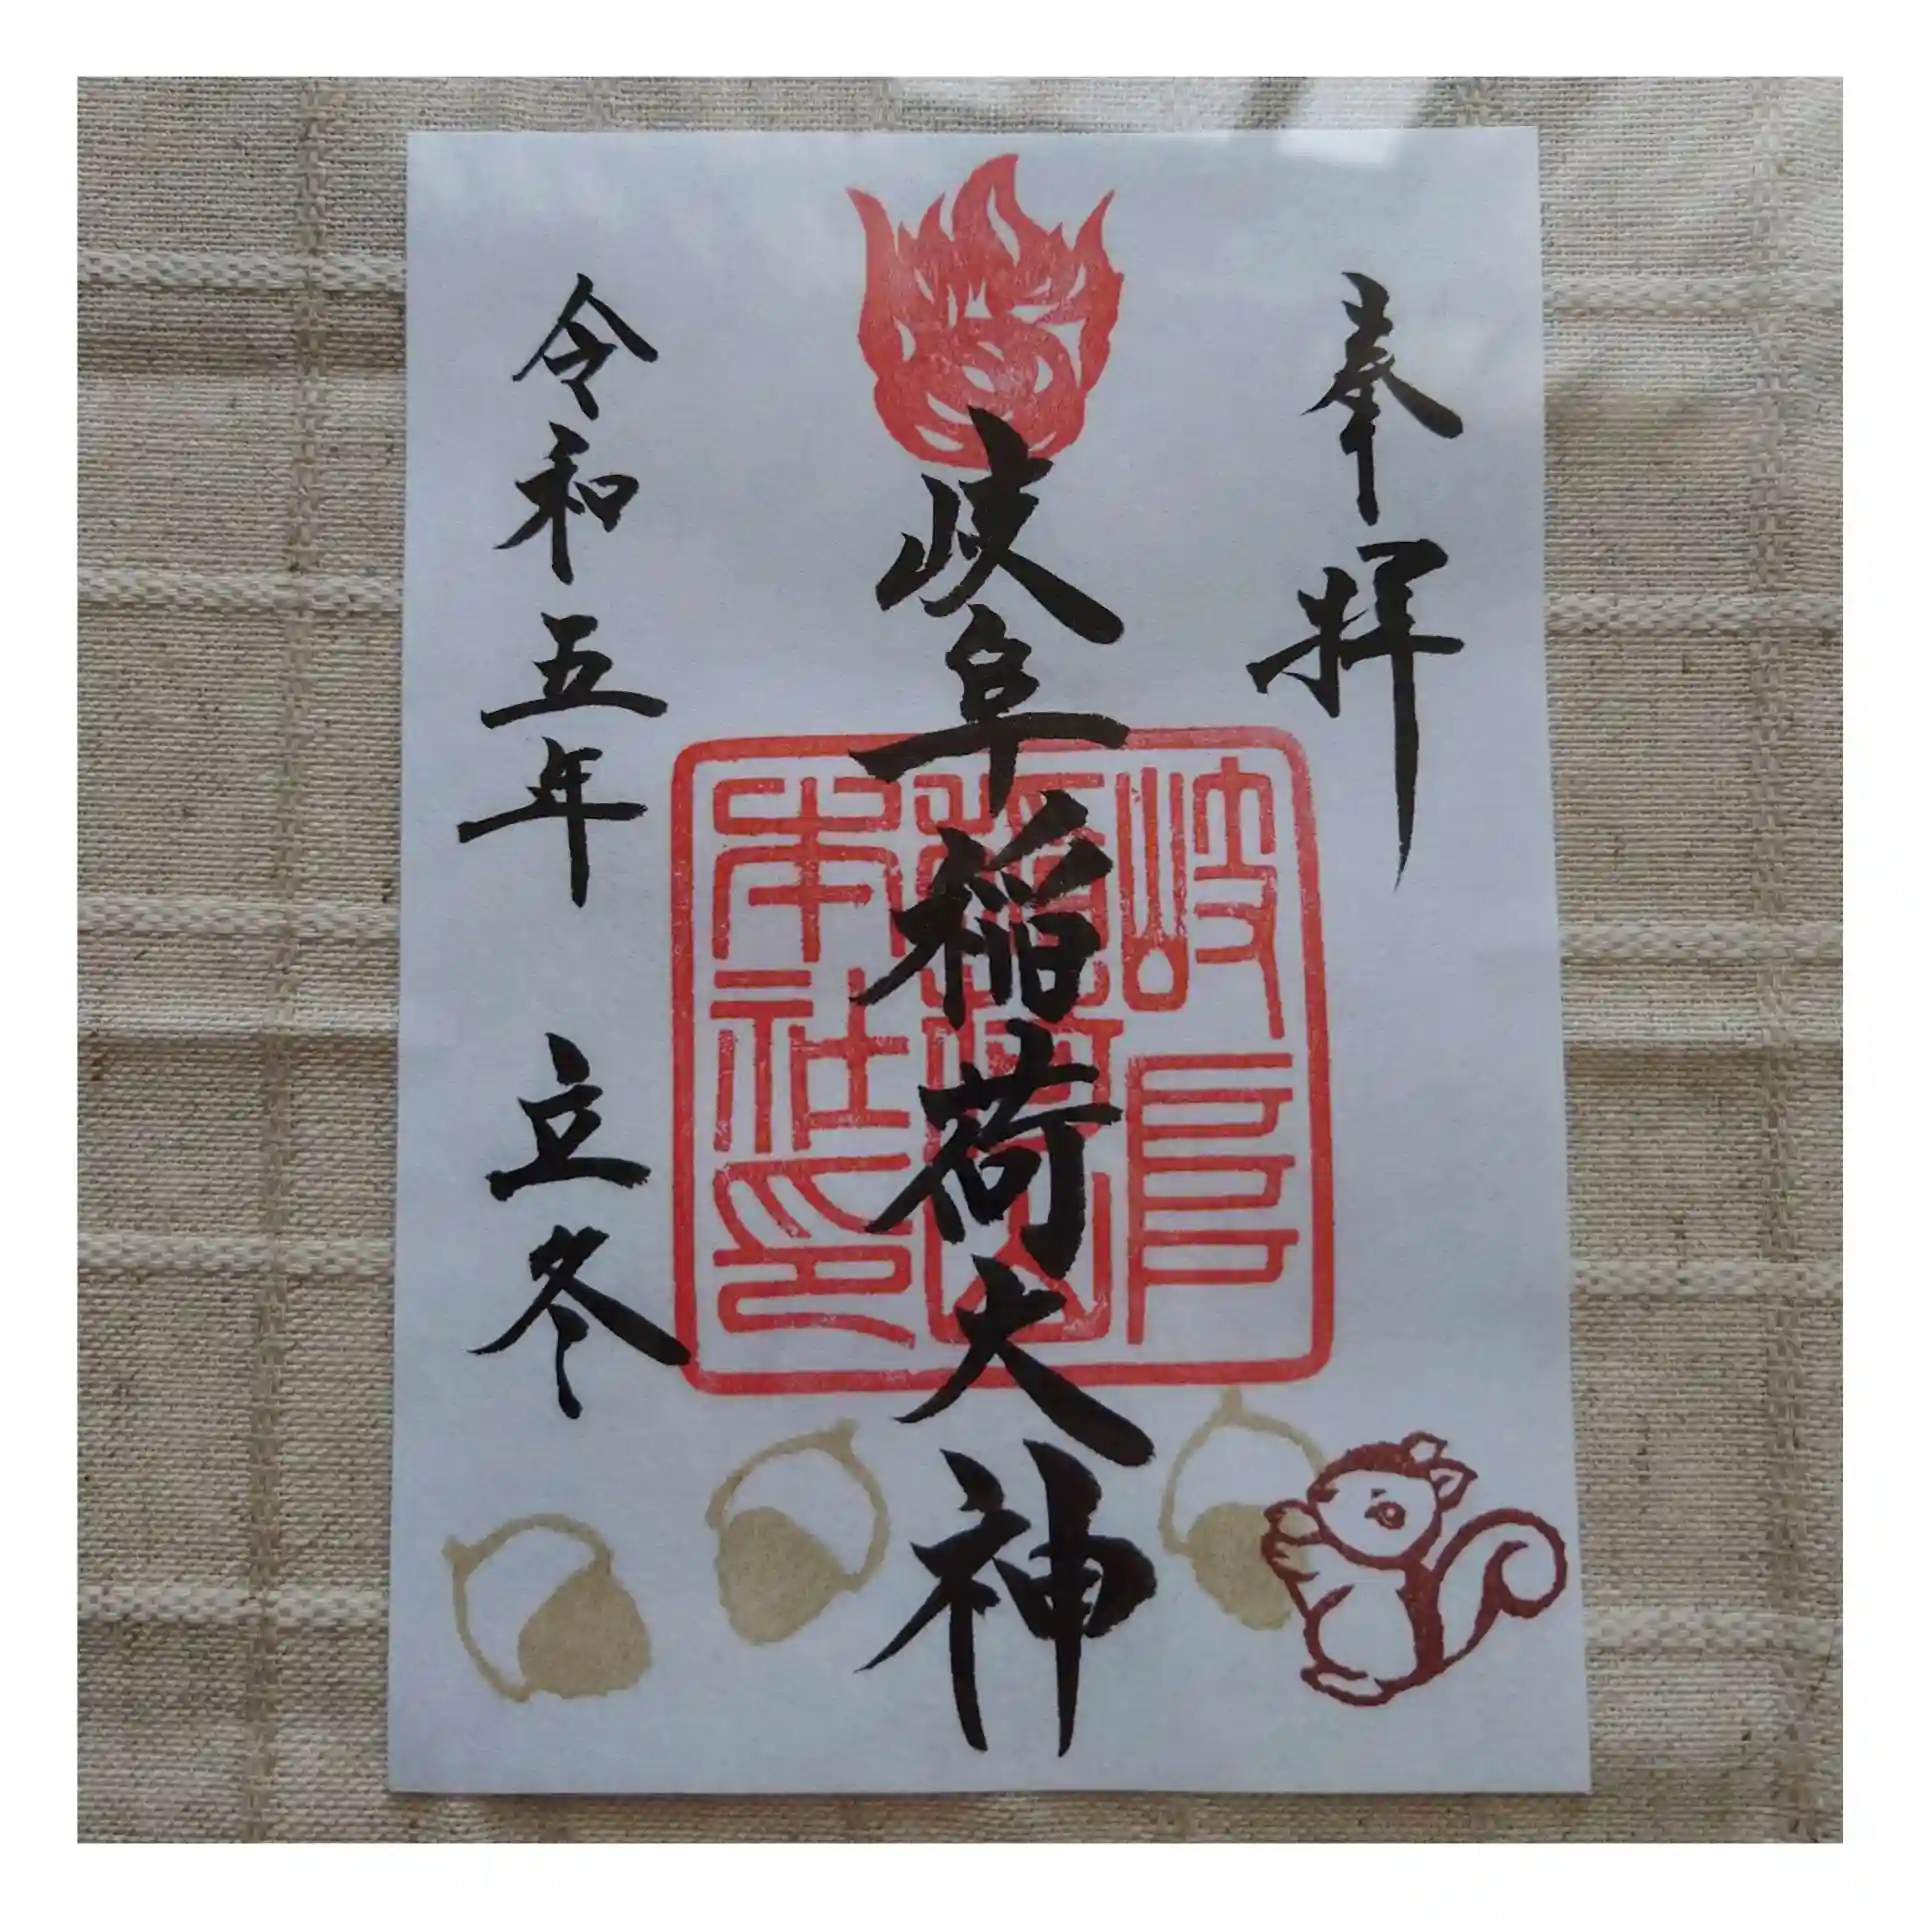 奉拝
岐阜稲荷大神
岐阜
稲荷山
本社印
令和五年 立冬